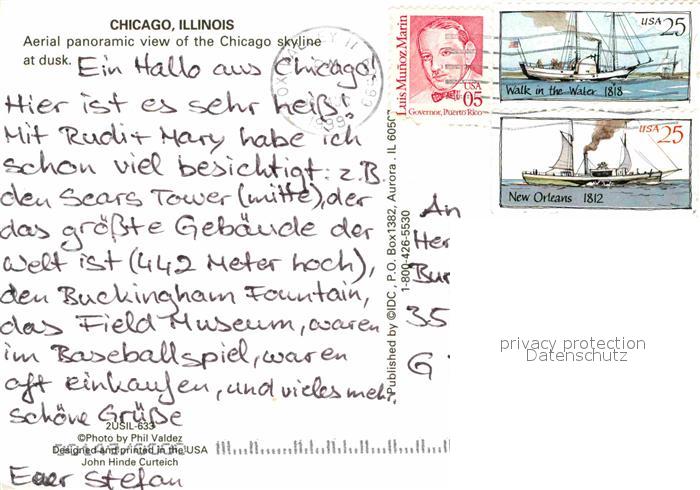 CHICAGO, ILLINOIS
Aerial panoramic view of the Chicago skyline
at dusk.
Ein Hallo aus Chicago!
Hier ist es sehr heiß!
Mit Rudi + Mary habe ich
schon viel besichtigt: z.B.
den Sears Tower (mitte), der
das größte Gebäude der
Welt ist (442 Meter hoch),
den Buckingham Fountain,
das Field Museum, waren
im Baseballspiel, waren
oft einkaufen, und vieles mehr.
schöne Grüße
Euer Stefan
2USIL-633
©Photo by Phil Valdez
Designed and printed in the USA
John Hinde Curteich
Published by ©IDC, P.O. Box1382, Aurora, IL 6050
1-800-426-5530
Luis Muñoz Marin
USA
05
Governor, Puerto Rico
USA 25
Walk in the Water 1818
USA 25
New Orleans 1812
An
Her
Bur
35
G
privacy protection
Datenschutz